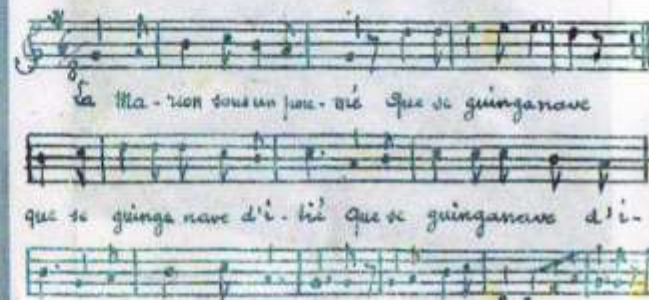 La Ma-rion sous un pou-mié Que se guinganave
que se guinga nave d'i-lié Que se guinganave d'i-